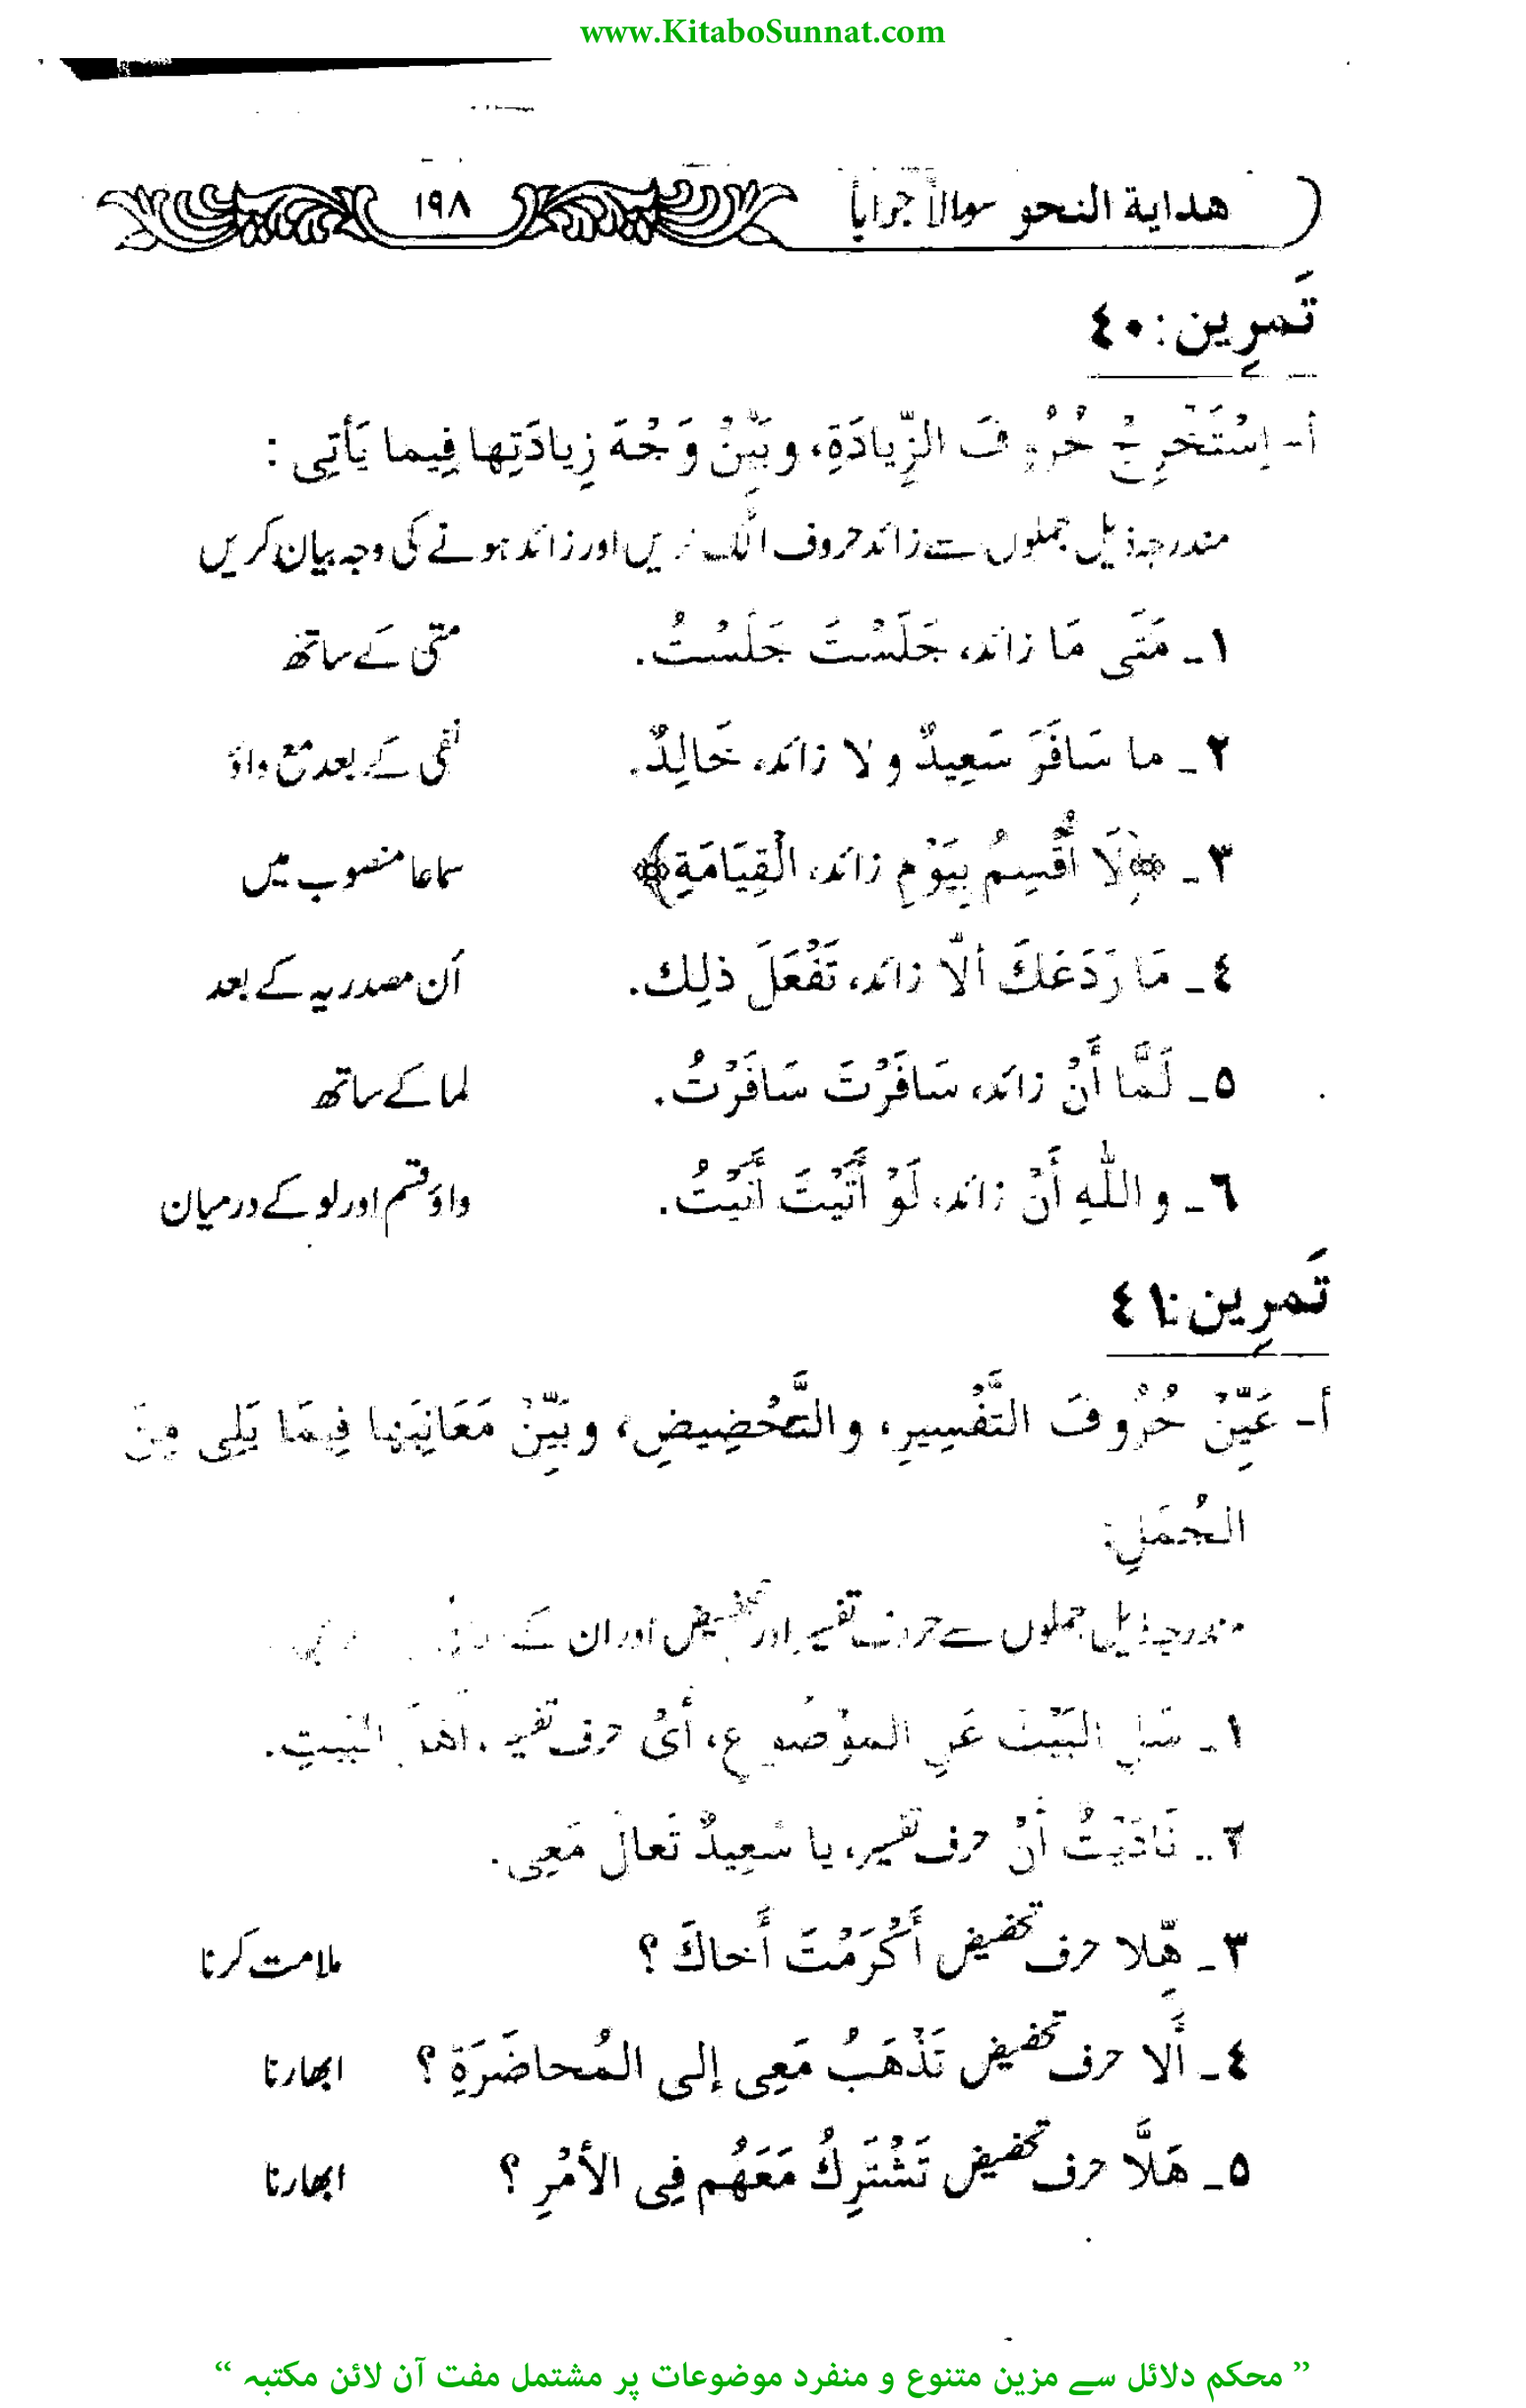 www.KitaboSunnat.com
هداية النحو سوالاً جواباً ١٩٨
تَمرِين: ٤٠
أ- اِسْتَخْرِجْ حُرُوفَ الزِّيادَةِ، وبَيِّنْ وَجْهَ زِيادَتِها فِيما يَأتِي :
مندرجہ ذیل جملوں سے زائد حروف الگ کریں اور زائد ہونے کی وجہ بیان کریں
١ـ مَتَى مَا زائد، جَلَسْتَ جَلَسْتُ. متی کے ساتھ
٢ـ ما سَافَرَ سَعِيدٌ و لا زائد، خَالِدٌ. نفی کے بعد مع واؤ
٣ـ ﴿لَا أُقْسِمُ بِيَوْمِ زائد، الْقِيَامَةِ﴾ سماعا منصوب میں
٤ـ مَا رَدَعَكَ ألّا زائد، تَفْعَلَ ذلِك. اَن مصدریہ کے بعد
٥ـ لَمَّا أَنْ زائد، سَافَرْتَ سَافَرْتُ. لما کے ساتھ
٦ـ و اللّٰهِ أَنْ زائد، لَوْ أَتَيْتَ أَتَيْتُ. واؤ قسم اور لو کے درمیان
تَمرِين: ٤١
أ- عَيِّنْ حُرُوفَ التَّفْسِيرِ، و التَّحْضِيضِ، وبَيِّنْ مَعَانِيَها فِيمَا يَلِي مِنَ
الجُمَلِ:
مندرجہ ذیل جملوں سے حروف تفسیر اور تحضیض اور ان کے
١ـ سَلِ البَيْتَ عَنِ الموْضُوعِ، أَىْ حرف تفسیر، أهْلَ البَيتِ.
٢ـ نَادَيْتُ أَنْ حرف تفسیر، يا سَعِيدُ تَعالَ مَعِى.
٣ـ هّلا حرف تحضیض أَكْرَمْتَ أَخاكَ ؟ ملامت کرنا
٤ـ أَلا حرف تحضیض تَذْهَبُ مَعِى إلى المُحاضَرَةِ ؟ ابھارنا
٥ـ هَلَّا حرف تحضیض تَشْتَرِكُ مَعَهُم فِى الأمْرِ ؟ ابھارنا
” محکم دلائل سے مزین متنوع و منفرد موضوعات پر مشتمل مفت آن لائن مکتبہ “